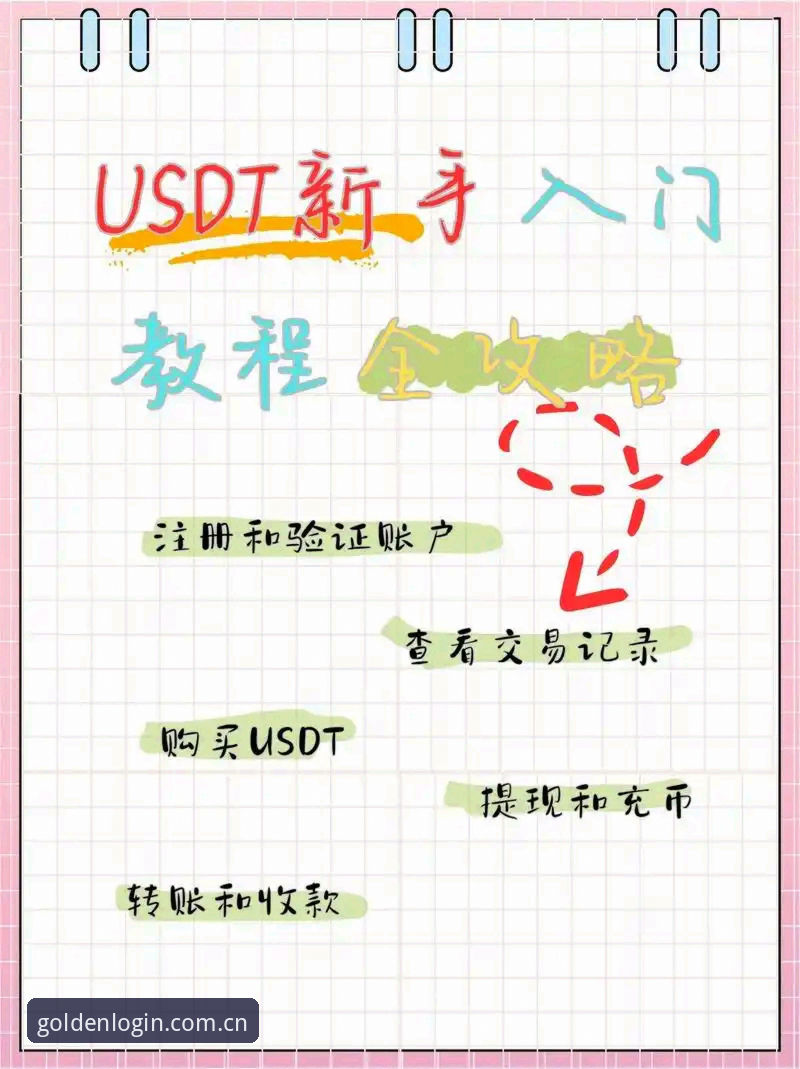 USDT新手入门
教程全攻略
注册和验证账户
查看交易记录
购买USDT
提现和充币
转账和收款
goldenlogin.com.cn